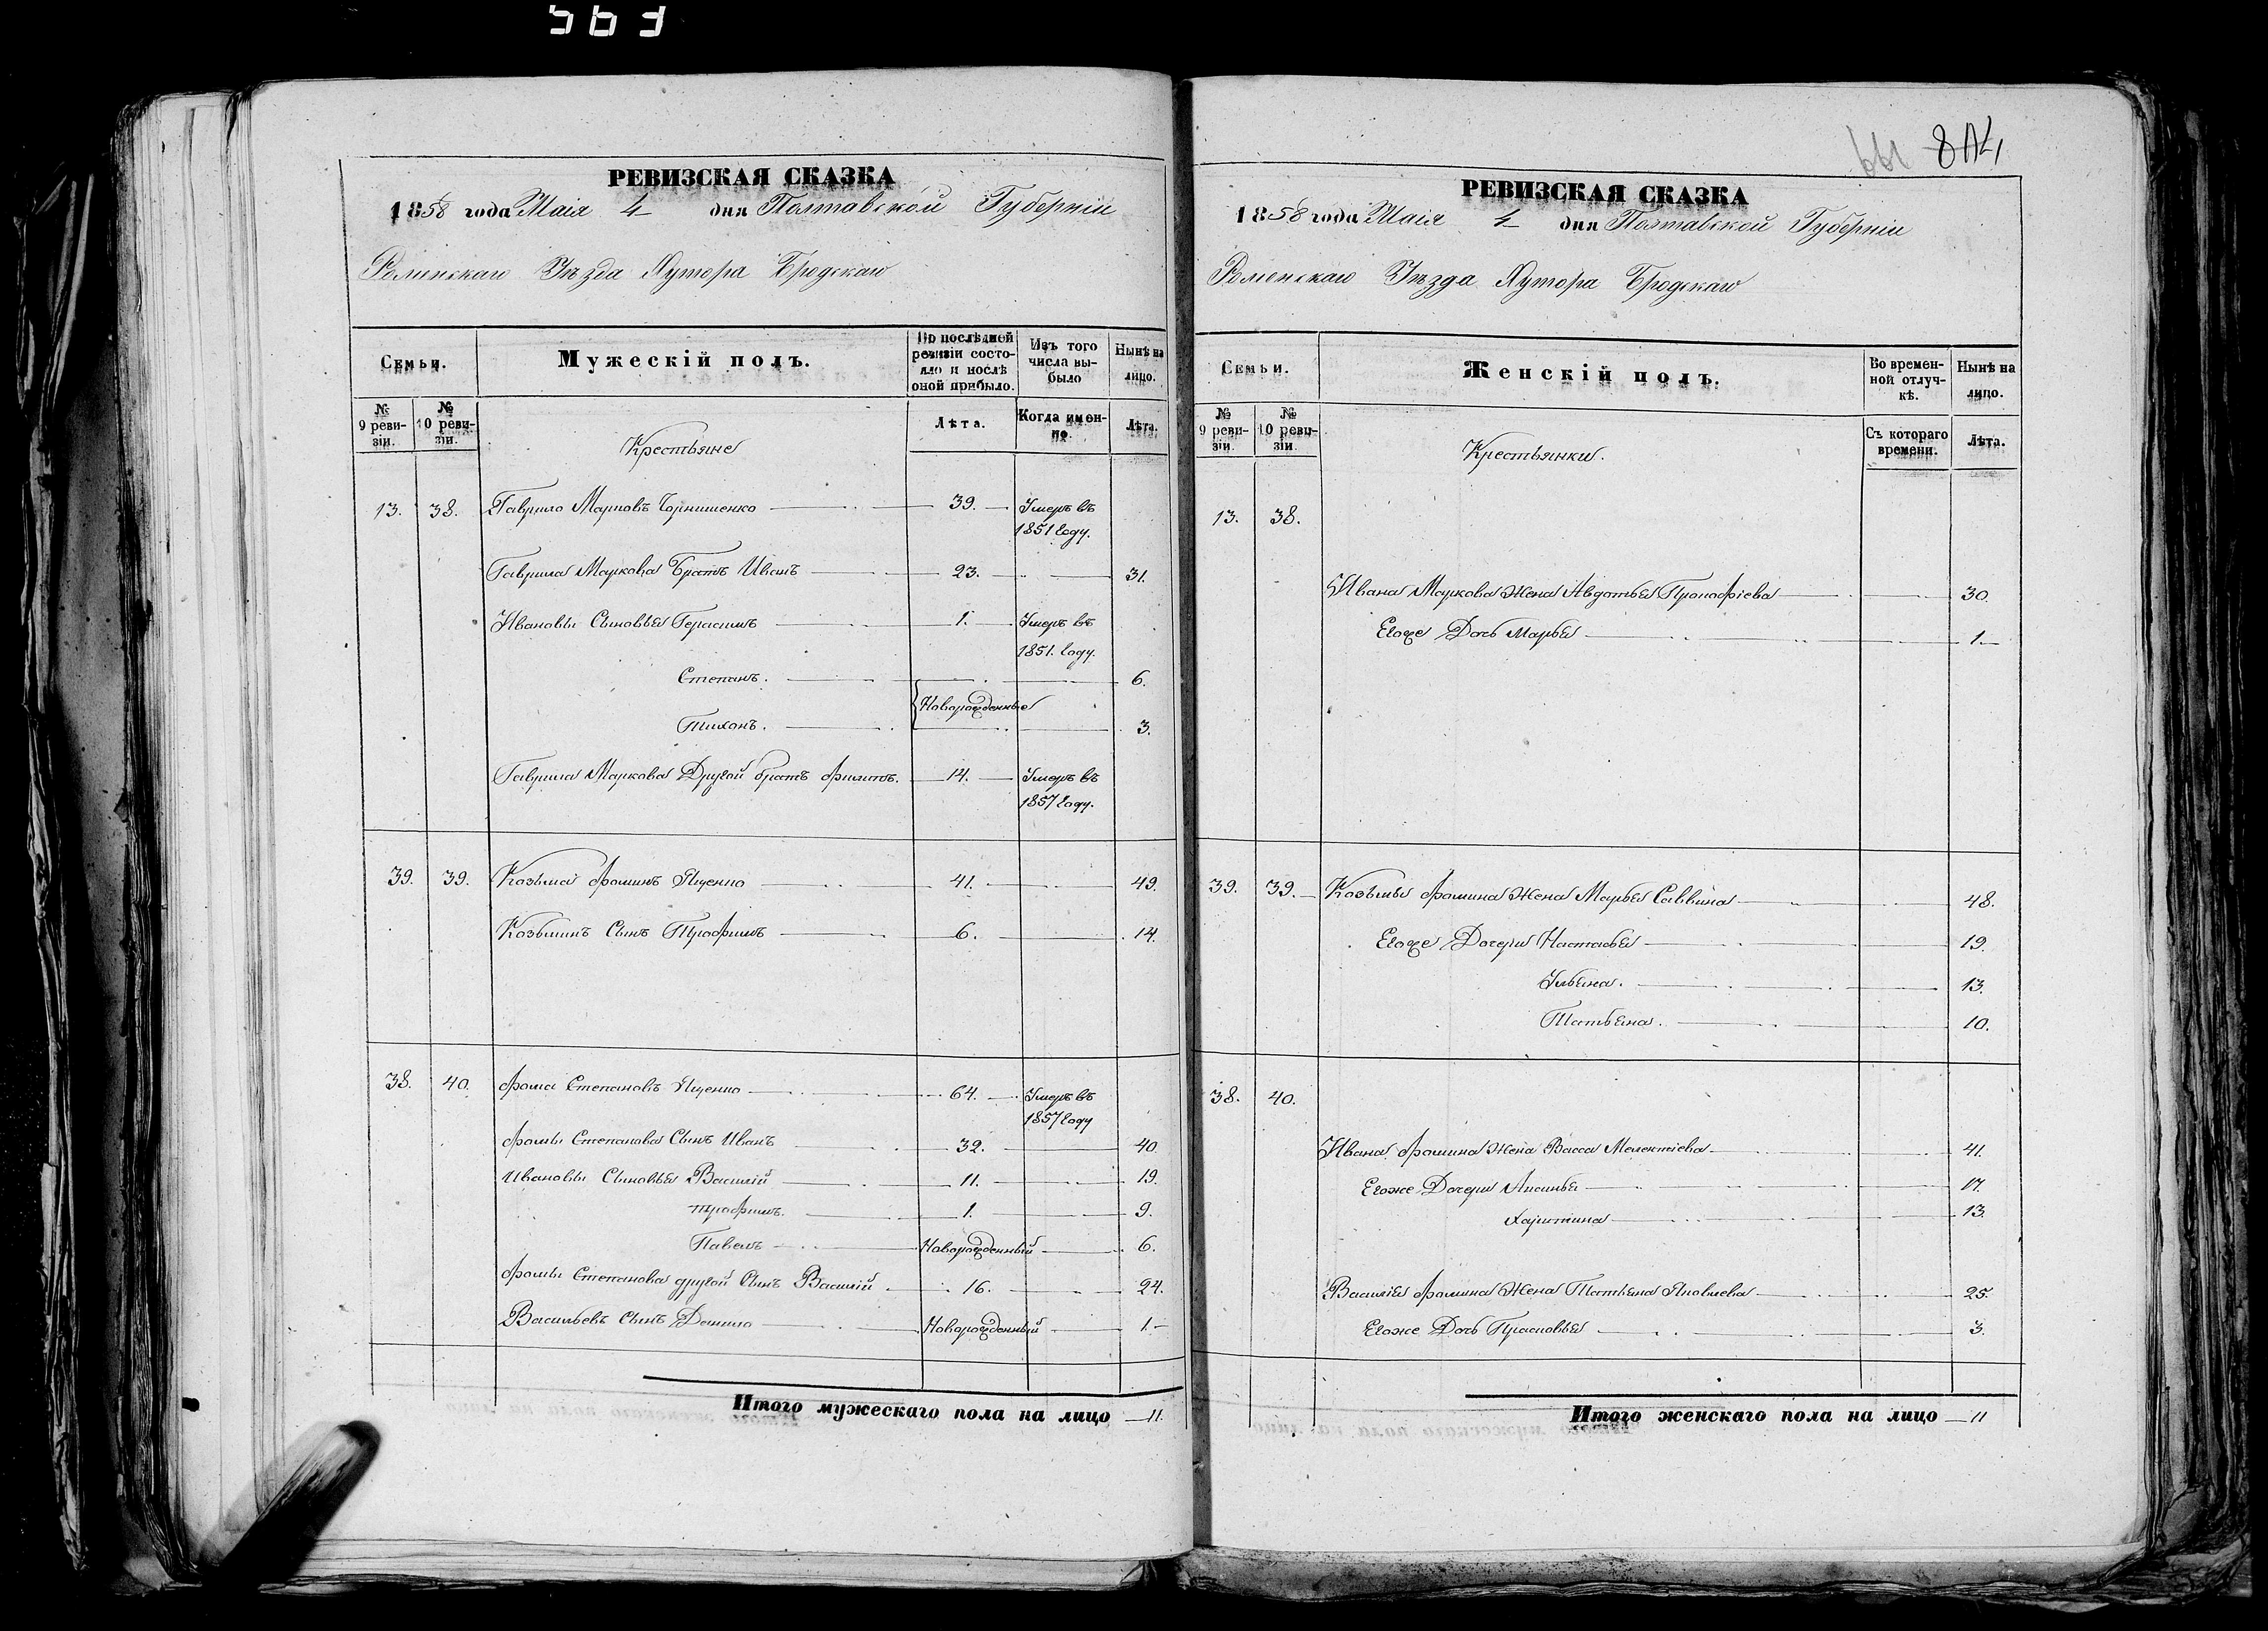 563
РЕВИЗСКАЯ СКАЗКА
1858 года Маія 4 дня Полтавской Губерніи
Роменскаго Уѣзда Хутора Бродскаго
Семьи.
Мужескій полъ.
По послѣдней ревизіи состояло и послѣ оной прибыло.
Изъ того числа выбыло
Нынѣ на лицо.
№ 9 ревизіи.
№ 10 ревизіи.
Крестьяне
Лѣта.
Когда именно.
Лѣта.
13. 38. Гаврило Марковъ 39. Умеръ въ
1851 году.
Гаврила Маркова Братъ Иванъ 23. 31.
Ивановы Сыновья Герасимъ 1. Умеръ въ
1851. году.
Степанъ. 6.
Новорожденные
Тихонъ. 3.
Гаврила Маркова Другой братъ Филипъ. 14. Умеръ въ
1857 году.
39. 39. Козьма Фоминъ Яценко 41. 49.
Козьминъ Сынъ Трофимъ 6. 14.
38. 40. Фома Степановъ Яценко 64. Умеръ въ
1857 году
Фомы Степанова Сынъ Иванъ 32. 40.
Ивановы Сыновья Василій 11. 19.
Трофимъ. 1. 9.
Павелъ Новорожденный 6.
Фомы Степанова другой Сынъ Василій 16. 24.
Васильевъ Сынъ Данило Новорожденный 1.
Итого мужескаго пола на лицо 11.
РЕВИЗСКАЯ СКАЗКА
1858 года Маія 4 дня Полтавской Губерніи
Роменскаго Уѣзда Хутора Бродскаго
Семьи.
Женскій полъ.
Во временной отлучкѣ.
Нынѣ на лицо.
№ 9 ревизіи.
№ 10 ревизіи.
Крестьянки.
Съ котораго времени.
Лѣта.
13. 38.
Ивана Маркова Жена Авдотья Прокофіева 30.
Егоже Дочь Марья 1.
39. 39. Козьмы Фомина Жена Марья Саввина 48.
Егоже Дочери Настасья 19.
Ульяна. 13.
Татьяна. 10.
38. 40.
Ивана Фомина Жена Васса Мелентіева 41.
Егоже Дочери Аксинья 17.
Харитина 13.
Василія Фомина Жена Татьяна Яковлева 25.
Егоже Дочь Прасковья 3.
Итого женскаго пола на лицо 11